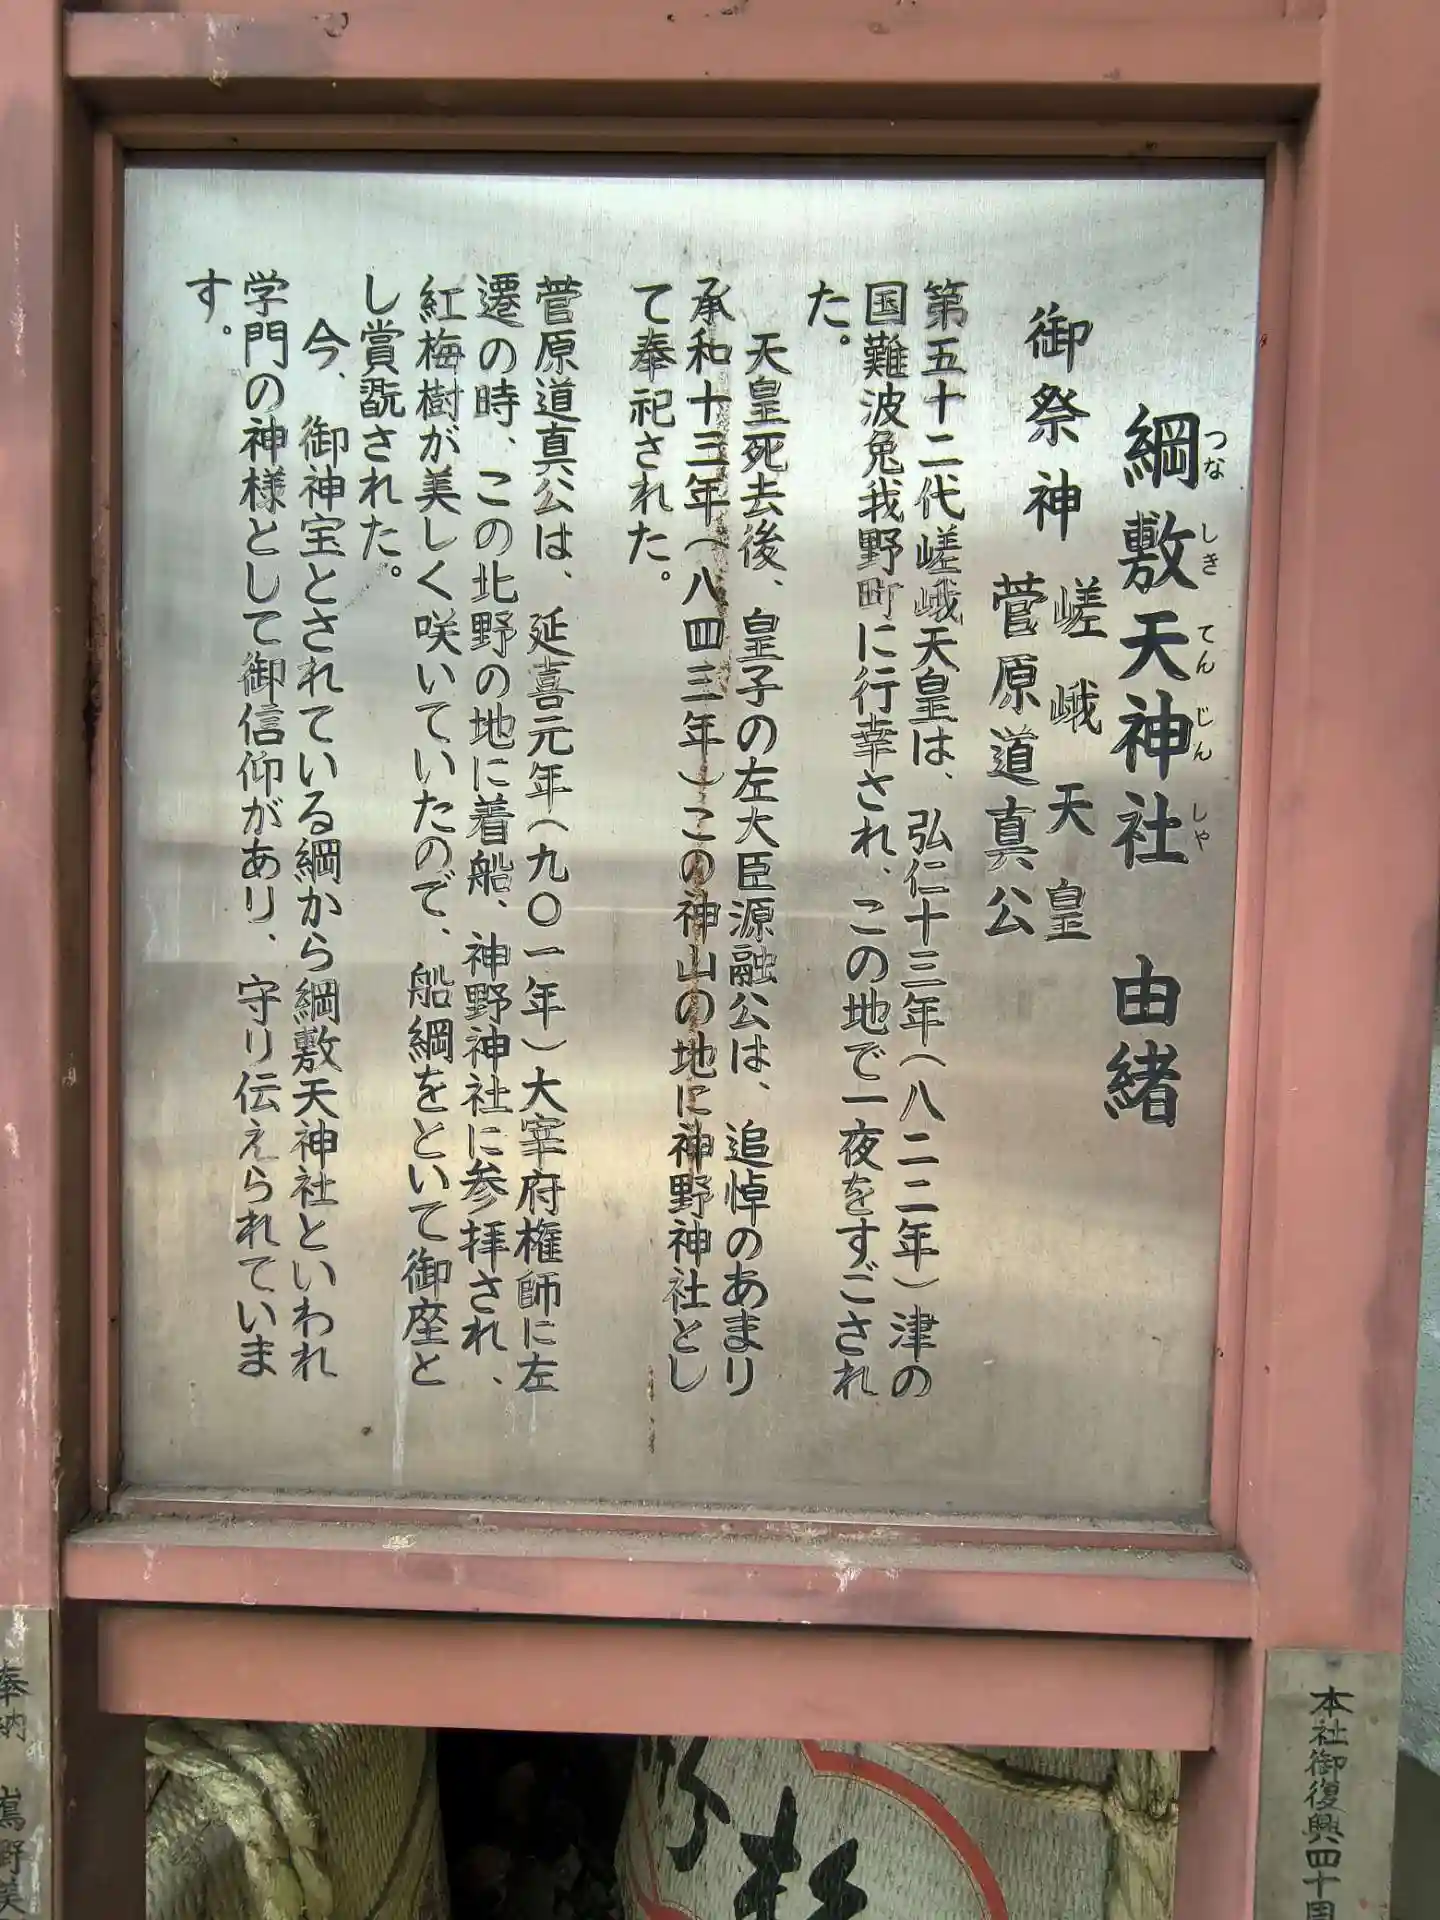 綱敷天神社 由緒
つなしきてんじんしゃ
御祭神 嵯峨天皇
菅原道真公
第五十二代嵯峨天皇は、弘仁十三年(八二二年)津の
国難波兔我野町に行幸され、この地で一夜をすごされ
た。
天皇死去後、皇子の左大臣源融公は、追悼のあまり
承和十三年(八四三年)この神山の地に神野神社とし
て奉祀された。
菅原道真公は、延喜元年(九〇一年)大宰府権師に左
遷の時、この北野の地に着船、神野神社に参拝され、
紅梅樹が美しく咲いていたので、船綱をといて御座と
し賞翫された。
今、御神宝とされている綱から綱敷天神社といわれ
学門の神様として御信仰があり、守り伝えられていま
す。
本社御復興四十周
奉納 嶌野美